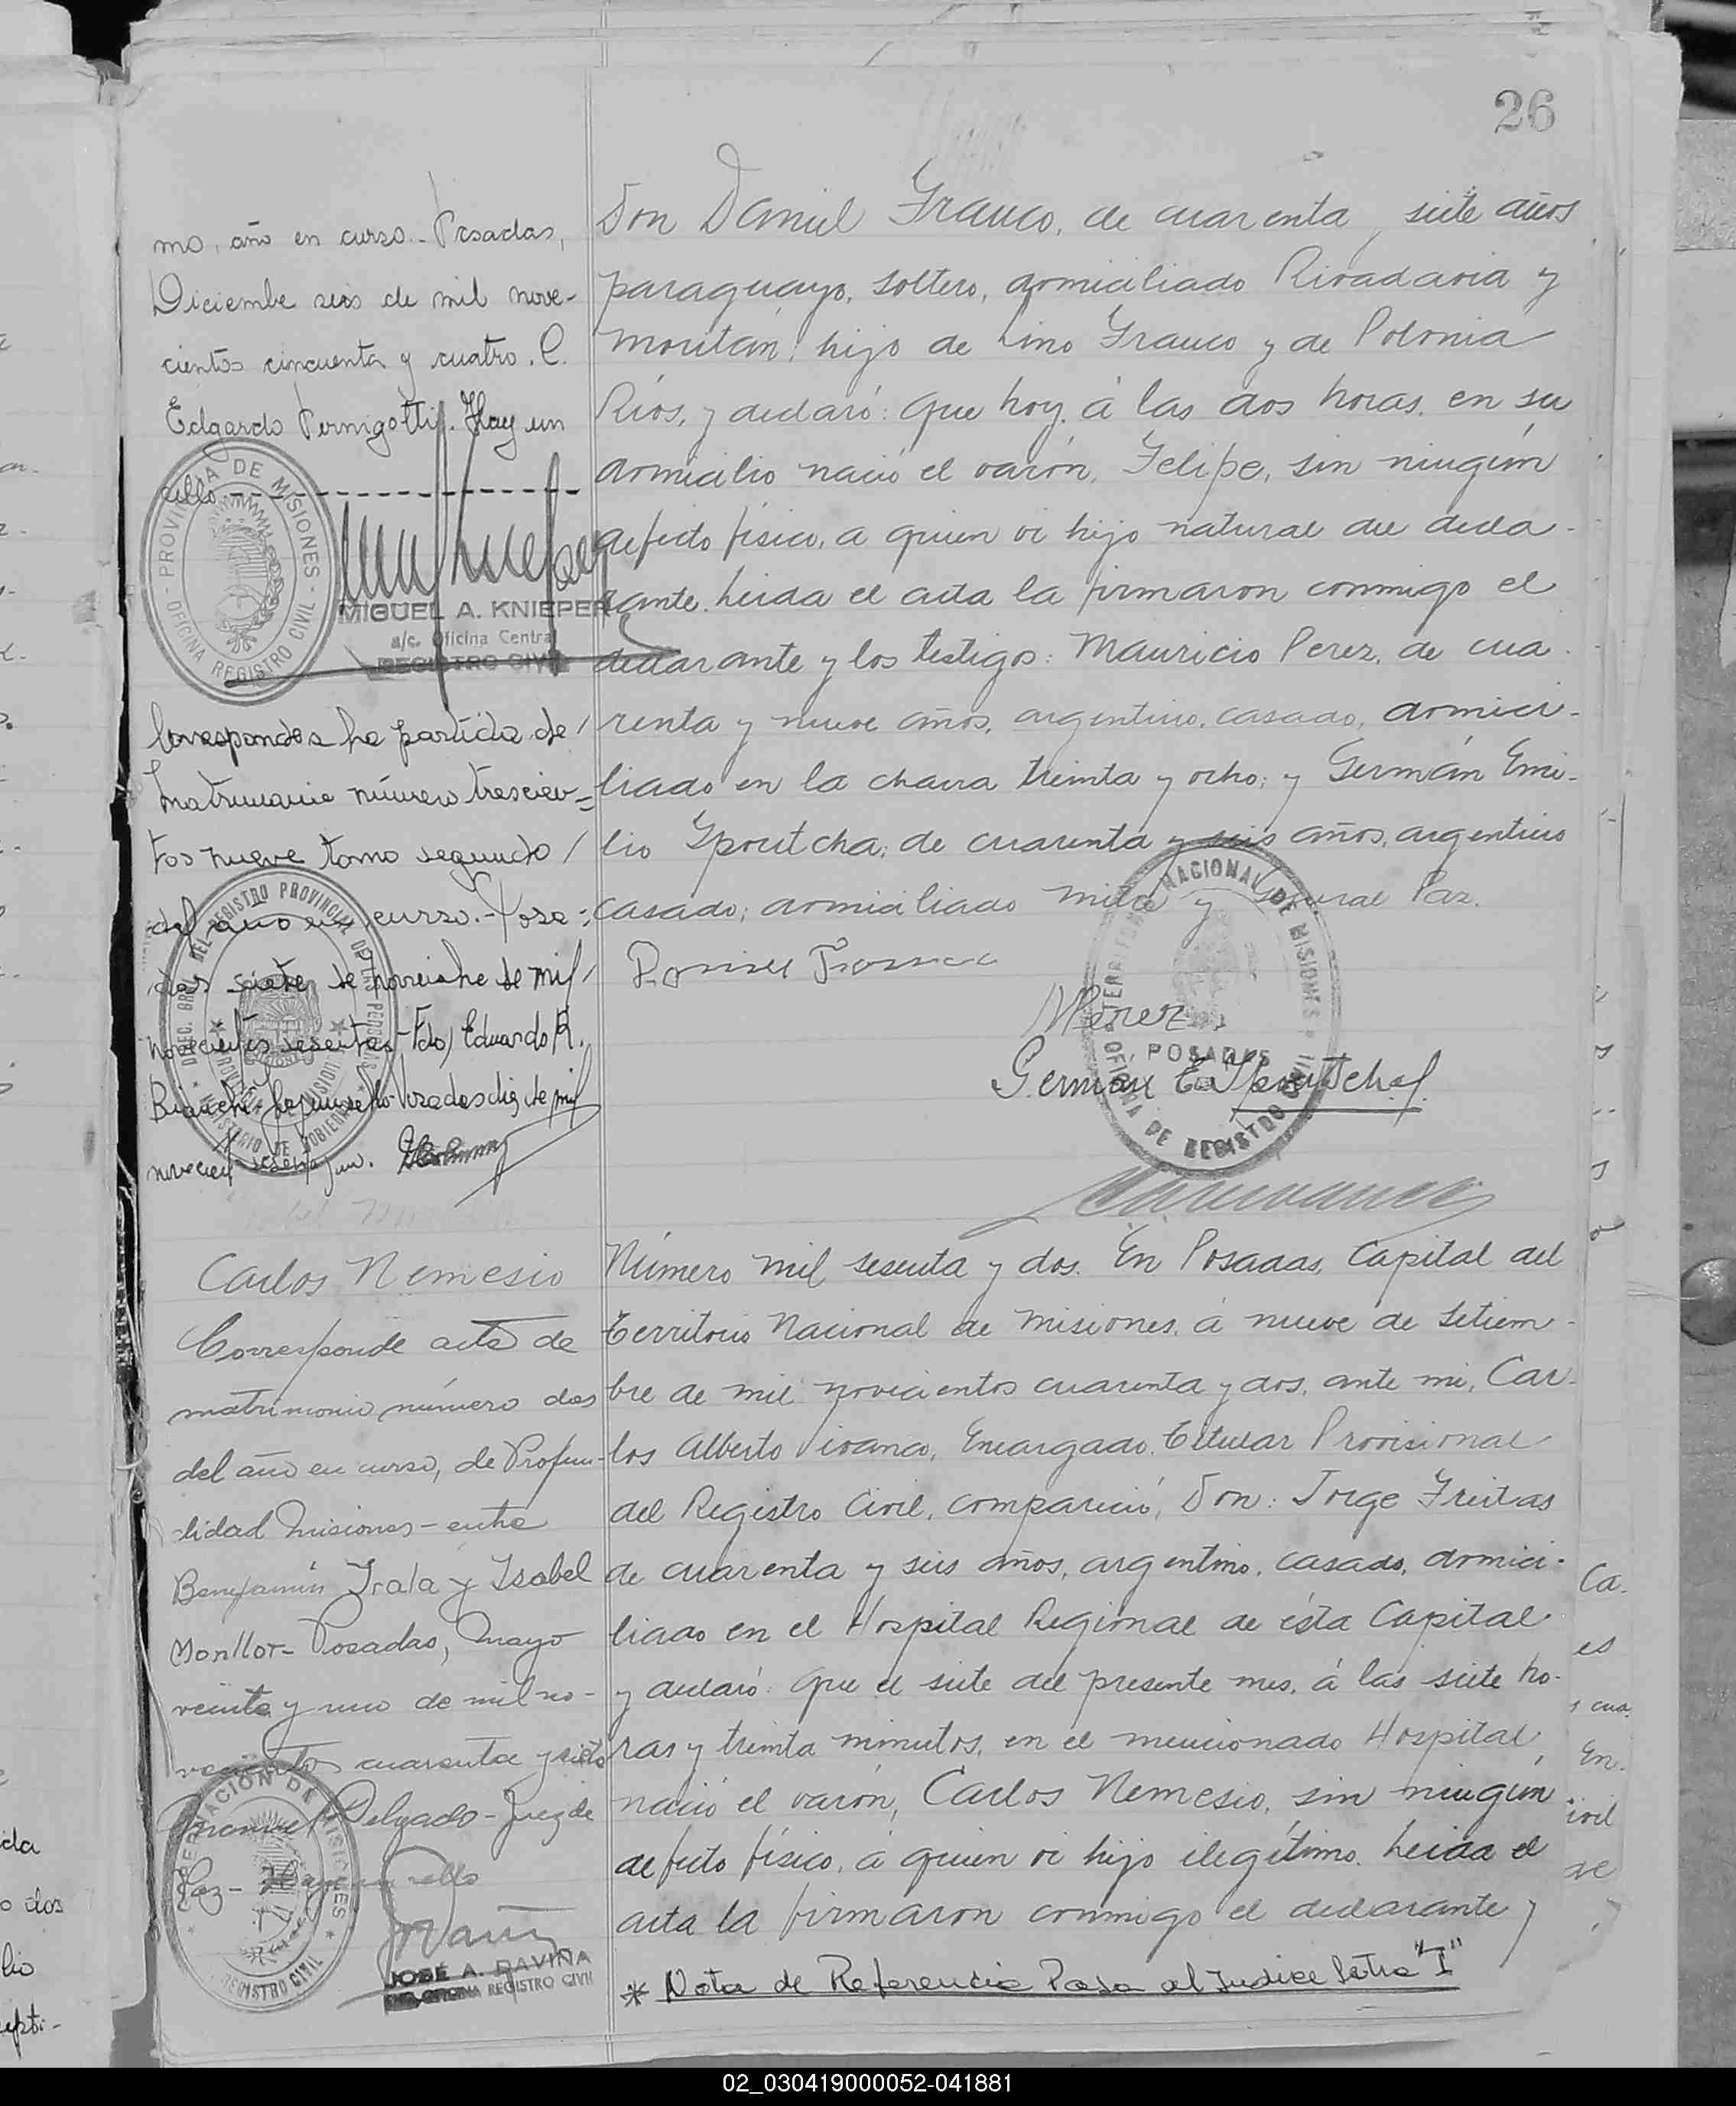 26
mo, año en curso.- Posadas,
Diciembre seis de mil nove-
cientos cincuenta y cuatro. C.
Edgardo Pernigotti. Hay un
sello
PROVINCIA DE MISIONES
OFICINA REGISTRO CIVIL
MIGUEL A. KNIEPER
a/c. Oficina Central
REGISTRO CIVIL
Corresponde la partida de
matrimonio número trescien-
tos nueve tomo segundo
del año en curso.- Posa-
das siete de noviembre de mil
novecientos sesenta - Fdo) Eduardo R.
Bianchi - Hay un sello - Posadas de mil
novecien
Don Daniel Franco, de cuarenta y siete años
paraguayo, soltero, domiciliado Rivadavia y
Moritán; hijo de Lino Franco y de Polonia
Ríos, y declaró: Que hoy, á las dos horas, en su
domicilio nació el varón, Felipe, sin ningún
defecto físico, a quien vi hijo natural del decla-
rante. Leida el acta la firmaron conmigo el
declarante y los testigos: Mauricio Perez, de cua-
renta y nueve años, argentino, casado, domici-
liado en la chacra treinta y ocho; y Germán Emi-
lio Spoutcha; de cuarenta y seis años, argentino
casado; domiciliado Mitre y General Paz.
Daniel Franco
MPerez
German E. Sputcha
TERRITORIO NACIONAL DE MISIONES
POSADAS
OFICINA DE REGISTRO CIVIL
Carlos Nemesio
Corresponde acta de
matrimonio número dos
del año en curso, de Profun-
didad Misiones - entre
Benjamín Irala y Isabel
Monllor - Posadas, Mayo
veinte y uno de mil no-
vecientos cuarenta y siete
Manuel Delgado - Juez de
Paz - Hay un sello
GOBERNACIÓN DE MISIONES
REGISTRO CIVIL
JOSÉ A. DAVIÑA
ENC. OFICINA REGISTRO CIVIL
Número mil sesenta y dos. En Posadas, Capital del
Territorio Nacional de Misiones, á nueve de Setiem-
bre de mil novecientos cuarenta y dos, ante mi, Car-
los Alberto Vivanco, Encargado Titular Provisional
del Registro Civil, compareció, Don: Jorge Freitas
de cuarenta y seis años, argentino, casado, domici-
liado en el Hospital Regional de ésta Capital
y declaró: Que el siete del presente mes, á las siete ho-
ras y treinta minutos, en el mencionado Hospital,
nació el varón, Carlos Nemesio, sin ningún
defecto físico, á quien vi hijo ilegítimo. Leida el
acta la firmaron conmigo el declarante y
* Nota de Referencia Pasa al Indice letra "I"
02_030419000052-041881